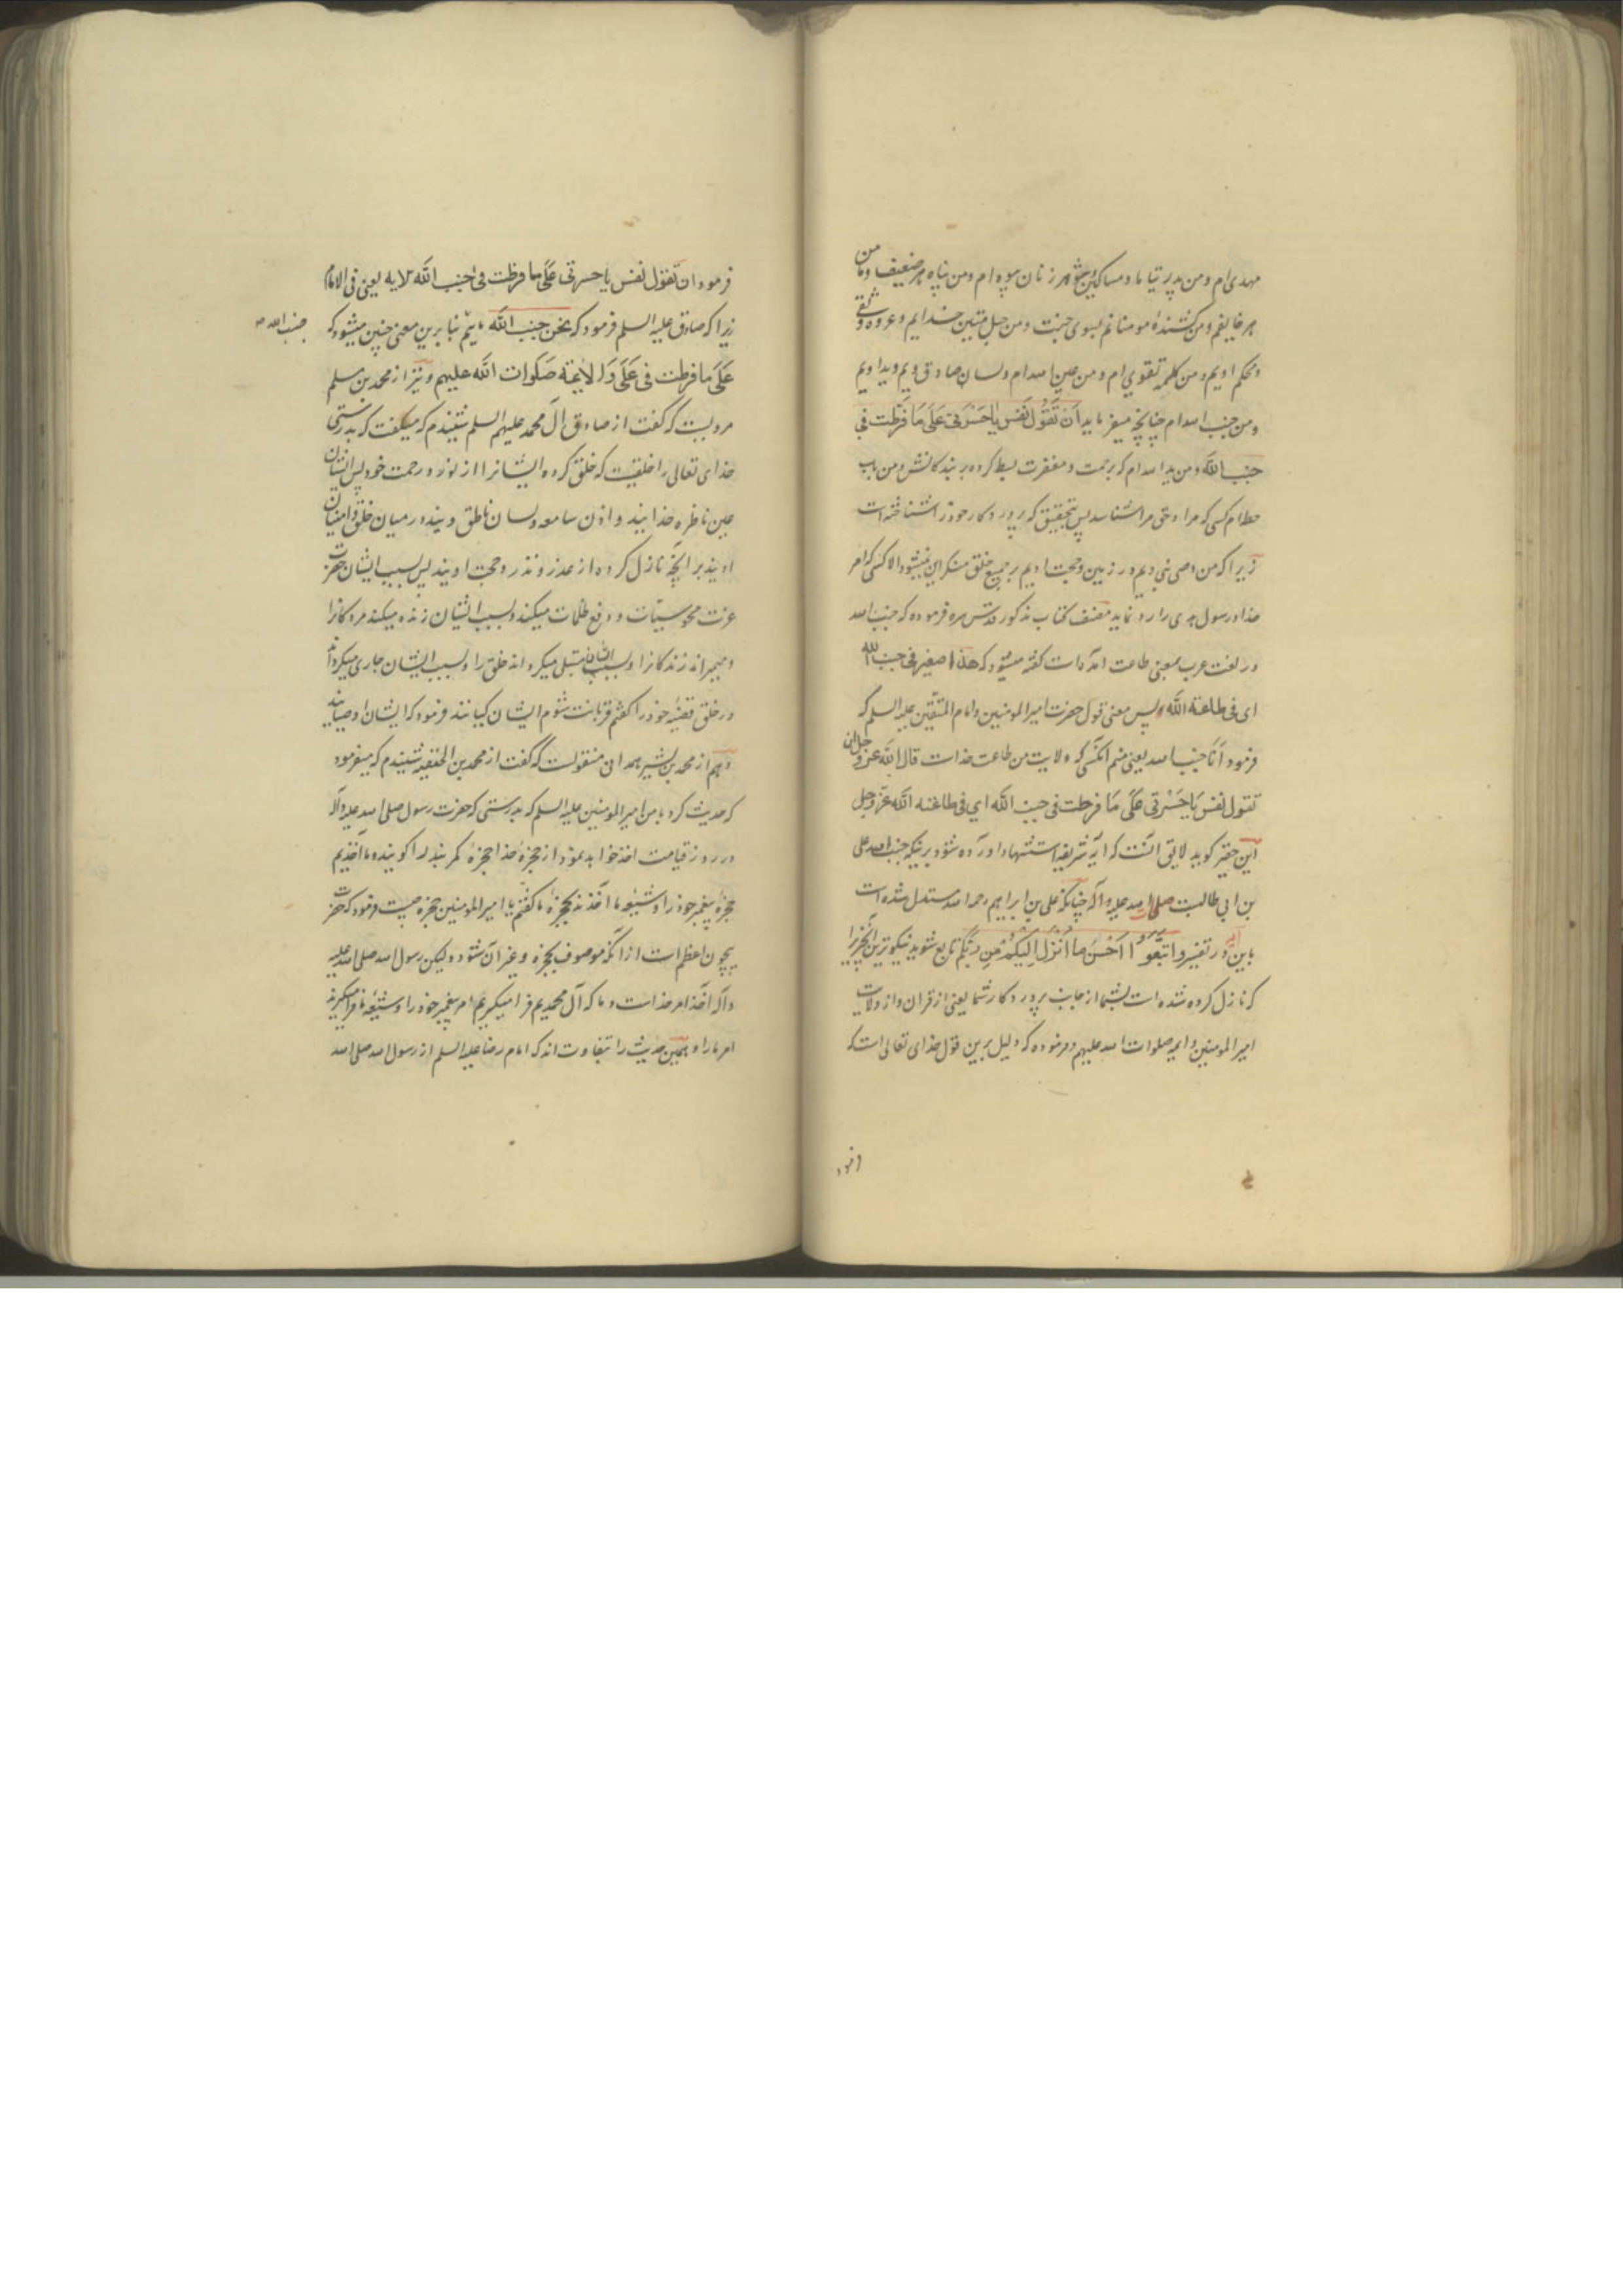 مهدی ام و من پدر یتیما و مساکین و شوهر زنان بیوه ام و من پناه هر ضعیف و من امان
هر خایفم و من کشنده مومنانم بسوی جنت و من حبل متین خدایم و عروه وثقی
و محکم اویم و من کلمه تقوی ام و من عین الله ام و لسان صادق ویم و ید اویم
و من جنب الله ام چنانچه میفرماید اَن تَقُولَ نَفس یَاحَسرَتی عَلَی مَا فَرَّطت فی
جنب الله و من ید الله ام که برحمت و مغفرت بسط کرده بر بندکانش و من باب
حطه ام کسی که مرا و حق مرا شناسد پس بتحقیق که پروردکار خود را شناخته است
زیرا که من وصی نبی ویم در زمین و حجت اویم بر جمیع خلق منکر این نمیشود الا کسی که امر
خدا و رسول وی را رد نماید مصنف کتاب مذکور قدس سره فرموده که جنب الله
در لغت عرب بمعنی طاعت آمده است کفته میشود که هذا صغیر فی جنب الله
ای فی طاعة الله پس معنی قول حضرت امیر المومنین و امام المتقین علیه السلم که
فرمود اَنَا جنب الله یعنی منم انکسی که ولایت من طاعت خداست قال الله عز و جل ان
تقول نفس یَاحَسْرَتی عَلَی مَا فرطت فی جنب الله ای فی طاعة الله عز و جل
این حقیر کوید لایق انست که آیه شریفه استشهاد اورده شود برینکه جنب الله علی
بن ابی طالبست صلی الله علیه و آله چنانکه علی بن ابراهیم رحمه الله مستدل شده است
باین آیه در تفسیر وَ اتَّبِعُوا اَحْسَنَ ما اُنْزِلَ اِلَیکُمْ مِن رَبِّکُم تابع شوید نیکوترین انچیز را
که نازل کرده شده است بشما از جانب پروردکار شما یعنی از قران و از ولایت
امیر المومنین و ایمه صلوات الله علیهم و فرموده که دلیل برین قول خدای تعالی است که
فرمود
فرمود ان تقول نفس یاحسرتی عَلَی ما فرطت فی جنب الله الایه یعنی فی الامام
زیرا که صادق علیه السلم فرمود که نحن جنب الله ماییم بنا برین معنی چنین میشود که
جنب الله
عَلَی مَا فرطت فی عَلَی وَ الائمة صَلَوات الله علیهم و نیز از محمد بن مسلم
مرویست که کفت از صادق آل محمد علیهم السلم شنیدم که میکفت که بدرستی
خدای تعالی را خلقیست که خلق کرده ایشانرا از نور و رحمت خود پس ایشان
عین ناظره خدایند و اذن سامعه و لسان ناطق ویند در میان خلق و امینان
اویند بر انچه نازل کرده از عذر و نذر و حجت اویند پس بسبب ایشان حضرت
عزت محو سیئات و دفع ظلمات میکند و بسبب ایشان زنده میکند مردکانرا
و میمیراند زندکانرا و بسبب ایشان مبتلی میکرداند خلق را و بسبب ایشان جاری میکرداند
در خلق قضیه خود را کفتم قربانت شوم ایشان کیانند فرمود که ایشان اوصیایند
و هم از محمد بن بشیر همدانی منقولست که کفت از محمد بن الحنفیه شنیدم که میفرمود
که حدیث کرد بامن امیر المومنین علیه السلم که بدرستی که حضرت رسول صلی الله علیه و آله
در روز قیامت اخذ خواهد نمود از حجزه خدا حجزه کمربند را کویند و ما آخذیم
حجزه پیغمبر خود را و شیعه ما آخذند بحجزه ما کفتم یا امیر المومنین حجزه چیست فرمود که حضرت
بیچون اعظم است از انکه موصوف بحجزه و غیر آن شود و لیکن رسول الله صلی الله علیه
و آله آخذ امر خداست و ما که آل محمدیم فرا میکیریم امر پیغمبر خود را و شیعه ما فرا میکیرند
امر ما را و همین حدیث را بتفاوت اندک امام رضا علیه السلم از رسول الله صلی الله